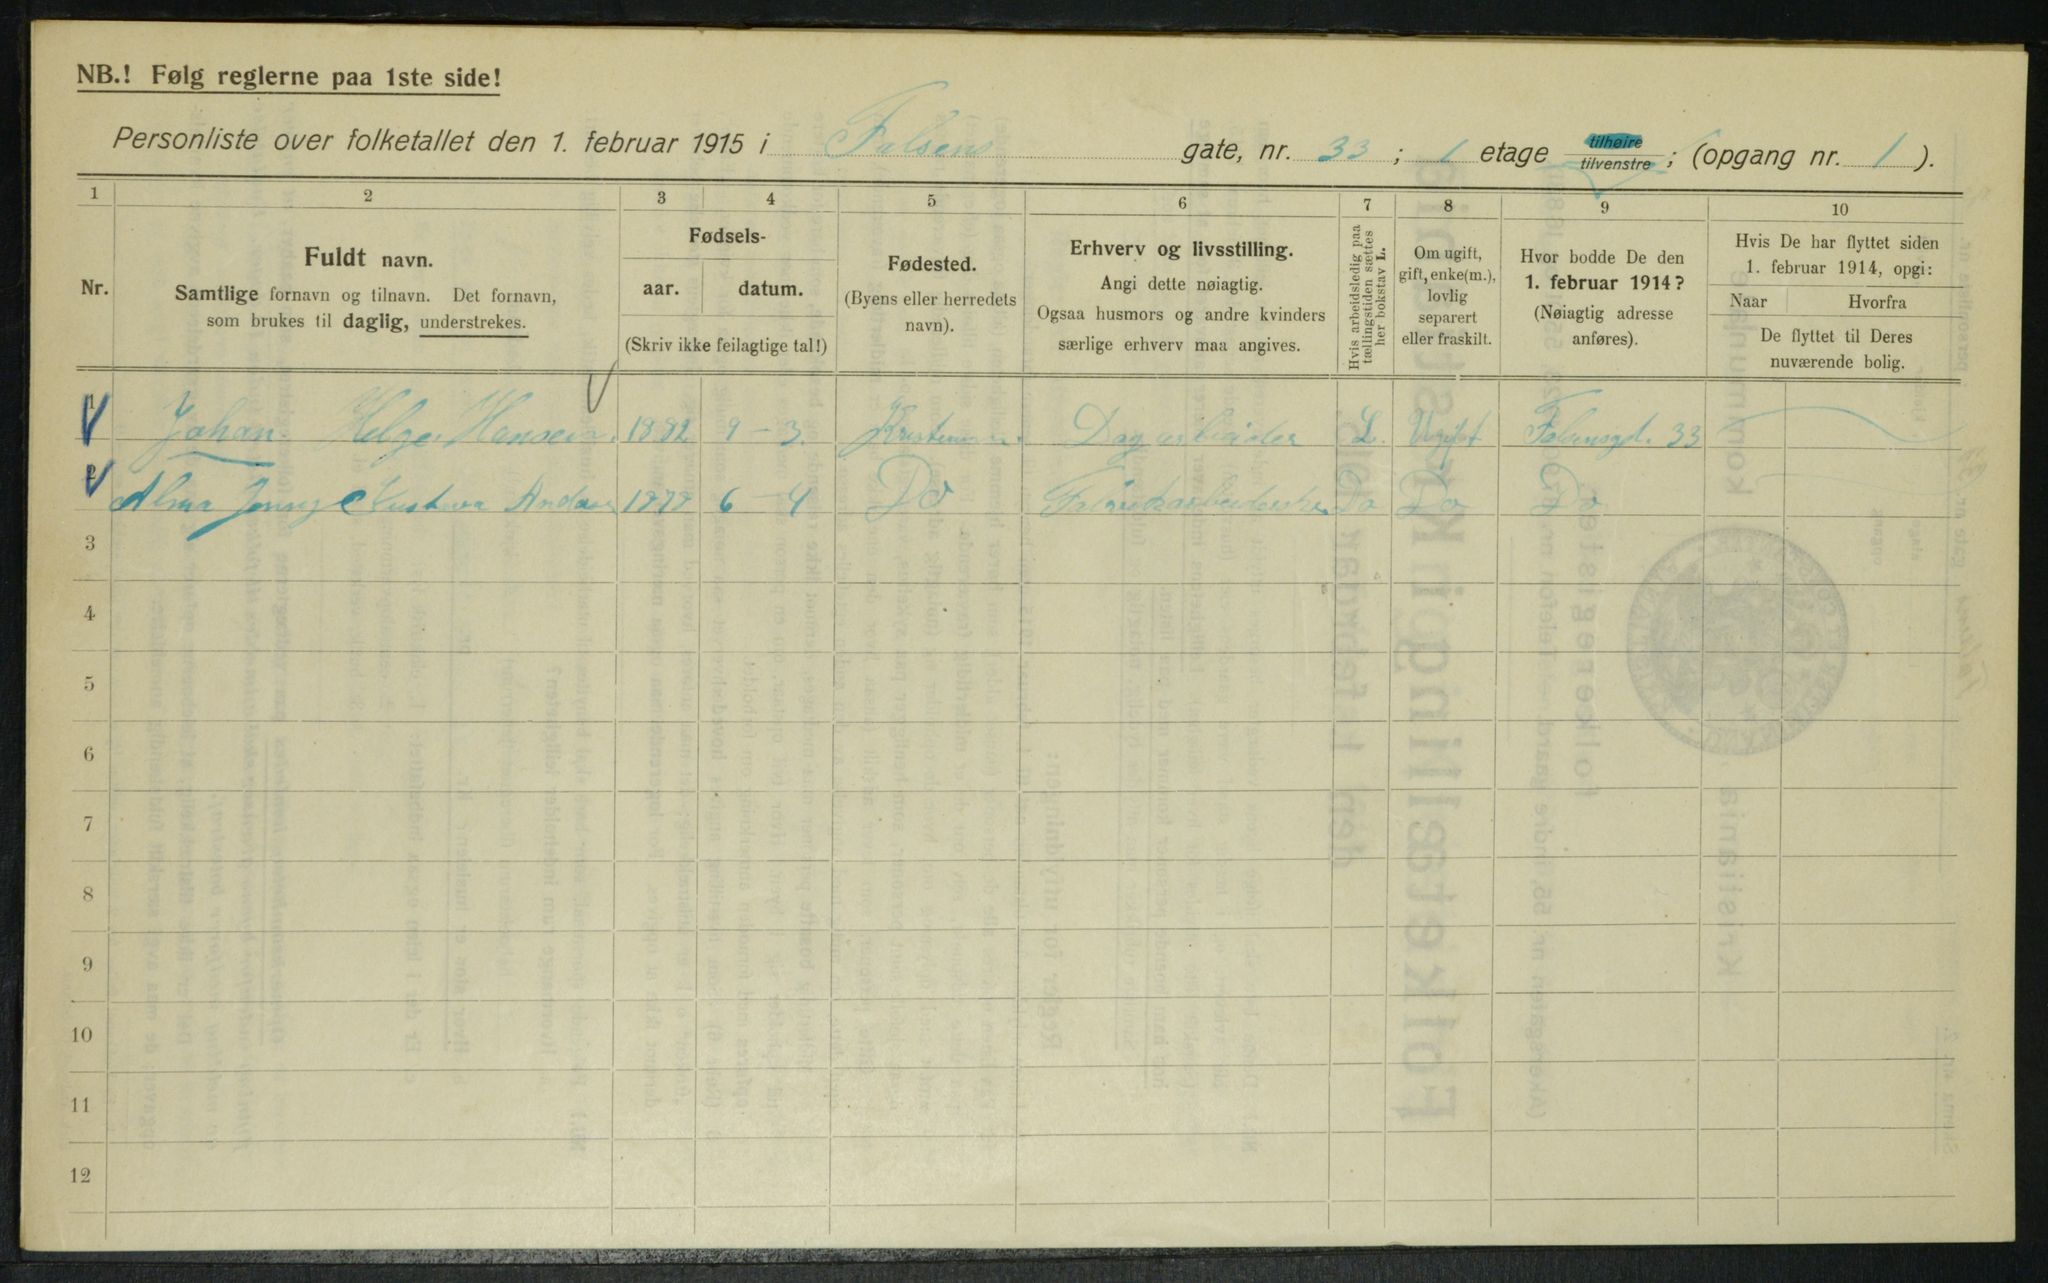 NB.! Følg reglerne paa 1ste side!
Personliste over folketallet den 1. februar 1915 i Falsens gate, nr. 33; 1 etage tilhøire tilvenstre; (opgang nr. 1).
1 2 3 4 5 6 7 8 9 10
Nr.
Fuldt navn.
Samtlige fornavn og tilnavn. Det fornavn,
som brukes til daglig, understrekes.
Fødsels-
aar. datum.
(Skriv ikke feilagtige tal!)
Fødested.
(Byens eller herredets
navn).
Erhverv og livsstilling.
Angi dette nøiagtig.
Ogsaa husmors og andre kvinders
særlige erhverv maa angives.
Hvis arbeidsledig paa
tællingstiden sættes
her bokstav L.
Om ugift,
gift, enke(m.),
lovlig
separert
eller fraskilt.
Hvor bodde De den
1. februar 1914?
(Nøiagtig adresse
anføres).
Hvis De har flyttet siden
1. februar 1914, opgi:
Naar Hvorfra
De flyttet til Deres
nuværende bolig.
1 Johan Helge Hansen. 1882 9-3. Dagarbeider L. Ugift Falsensgt. 33
2 Alma Jenny Gustava 6-4 Do Fabrikarbeiderske Do Do Do
3
4
5
6
7
8
9
10
11
12